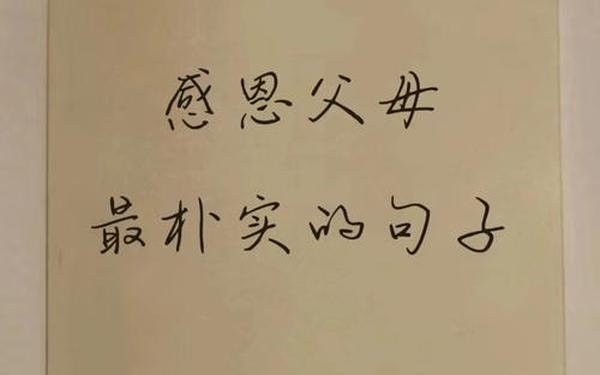 感恩父母
最朴实的句子